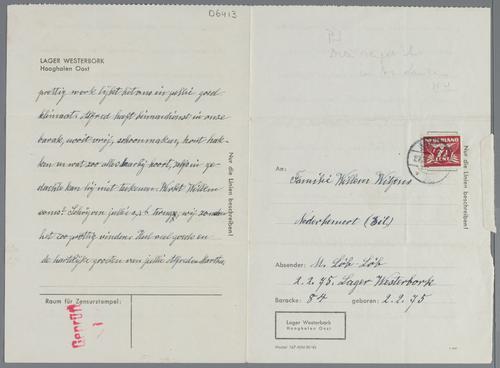 D6413
LAGER WESTERBORK
Hooghalen Oost
prettig werk lijkt het ons in jullie goed
klimaat. Alfred heeft binnendienst in onze
barak, nooit vrij, schoonmaken, hout hak-
ken en wat zoo alles daarbij hoort, zelfs in ge-
dachte kan hij niet teekenen. Werkt Willem
soms? Schrijven jullie a.s.b. terug, wij zouden
het zoo prettig vinden. Heel veel goeds en
de hartelijke groeten van jullie Alfred en Martha
Nur die Linien beschreiben!
Raum für Zensurstempel:
Geprüft
1
NEDERLAND
7½
An:
Familie Willem
Nederhemert (Gel.)
Nur die Linien beschreiben!
Absender: M. Löb-Löb
2.2.75. Lager Westerbork
Baracke: 84 geboren: 2.2.75
Lager Westerbork
Hooghalen Oost